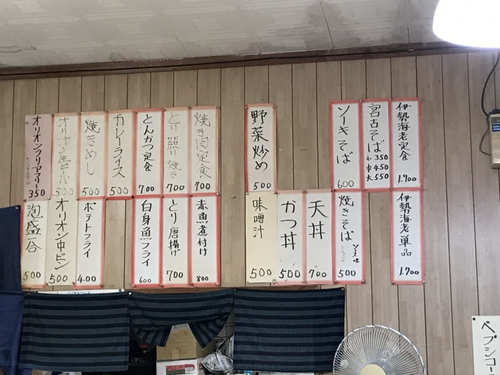 伊勢海老定食
1.700
宮古そば
小 350
中 450
大 550
ソーキそば
600
野菜炒め
500
焼き肉定食
700
とり照り焼き
700
とんかつ定食
700
カレーライス
500
焼きめし
500
オリオン
500
オリオンフリアリー
350
伊勢海老単品
1.700
焼きそば
500
天丼
700
かつ丼
500
味噌汁
500
赤魚煮付け
800
とり唐揚げ
700
白身魚フライ
600
ポテトフライ
400
オリオン中ビン
500
泡盛一合
500
ペプシコー